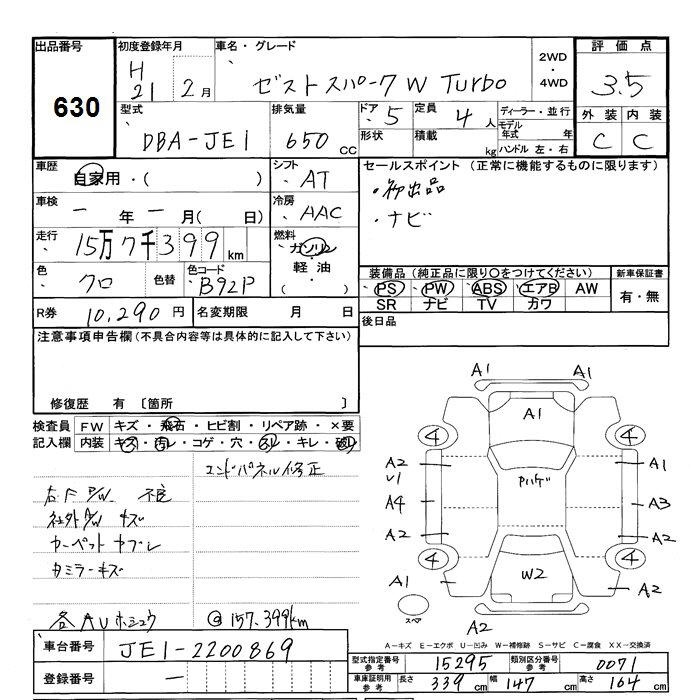 出品番号
630
初度登録年月
H
21 2月
車名・グレード
ゼスト スパーク W Turbo
2WD
・
4WD
評価点
3.5
外装 内装
C C
型式
DBA-JE1
排気量
650 CC
ドア 5
形状
定員 4人
積載 kg
ディーラー・並行
モデル
年式 年
ハンドル 左・右
車歴
自家用・( )
シフト
AT
車検
ー 年 ー 月( 日)
冷房
AAC
走行
15万7千399 km
燃料
ガソリン
軽油
( )
色
クロ
色替
色コード
B92P
セールスポイント (正常に機能するものに限ります)
・初出品
・ナビ
装備品 (純正品に限り○をつけてください)
PS PW ABS エアB AW
SR ナビ TV カワ
新車保証書
有・無
R券 10,290 円
名変期限 月 日
後日品
注意事項申告欄(不具合内容等は具体的に記入して下さい)
修復歴 有 〔箇所 〕
検査員
記入欄
FW キズ・飛石・ヒビ割・リペア跡・×要
内装 キズ・汚レ・コゲ・穴・スレ・キレ・破レ
エンドパネル修正
右F P/W 不良
社外A/W キズ
カーペット ヤブレ
各AUホシュウ
@157,399km
車台番号 JE1-2200869
登録番号 ー
A1 A1
A1
4 4
A2 A1
U1
Aハゲ
A4 A3
A2 A2
4 4
A1 A2
W2
スペア
A2
A-キズ E-エクボ U-凹み W-補修跡 S-サビ C-腐食 XX-交換済
型式指定番号
参考
15295
類別区分番号
参考
0071
車庫証明用
参考
長さ 339 cm 幅 147 cm 高さ 164 cm